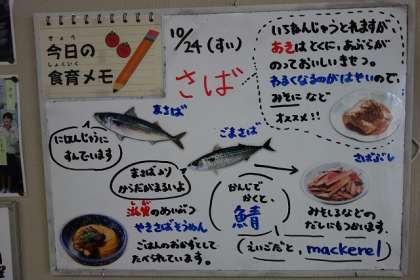 きょう
今日の
しょくいく
食育メモ
10/24(すい)
さば
いちねんじゅうとれますが、
あきはとくに、あぶらが
のっておいしいきせつ。
わるくなるのがはやいので、
みそになど
オススメ!!
まさば
にほんじゅうに
すんでいます
ごまさば
まさばより
からだがまるいよ
さばぶし
みそしるなどの
だしにもつかいます。
かんじで
かくと、
鯖
えいごだと、mackerel
滋賀のめいぶつ
やきさばそうめん
ごはんのおかずとして
たべられています。